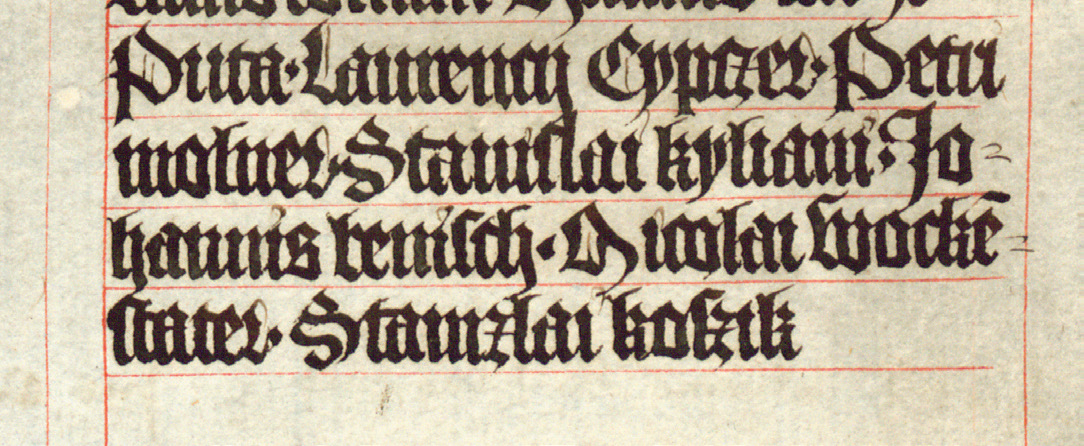 Puta · Laurencij Cypczer · Petri
molner · Stanislai kyliani · Jo-
hannis benisch · Nicolai wockē-
stater · Stanizlai koszik